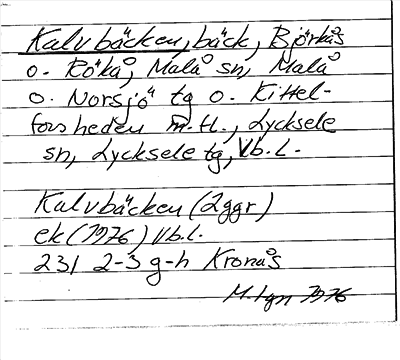 Kalvbäcken, bäck, Björkås
o. Rökå, Malå sn, Malå
o. Norsjö tg o. Kittel-
forsheden m.fl., Lycksele
sn, Lycksele tg, Vb.l.
Kalvbäcken (2ggr)
ek (1976) Vb.l.
231 2-3 g-h Kronås
1976